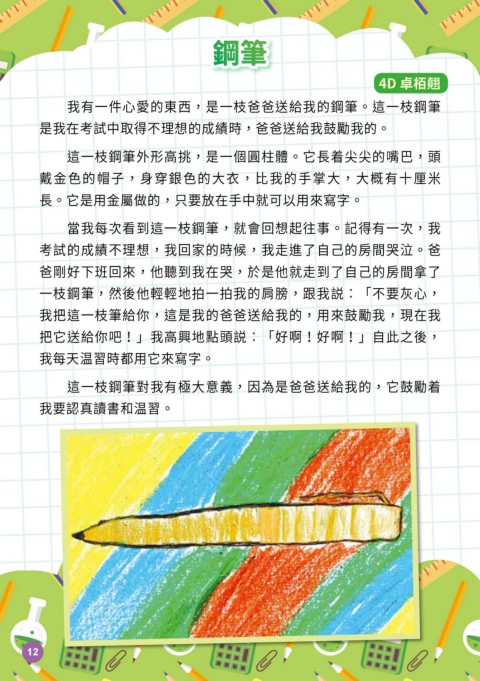 鋼筆
4D 卓栢翹
我有一件心愛的東西，是一枝爸爸送給我的鋼筆。這一枝鋼筆
是我在考試中取得不理想的成績時，爸爸送給我鼓勵我的。
這一枝鋼筆外形高挑，是一個圓柱體。它長着尖尖的嘴巴，頭
戴金色的帽子，身穿銀色的大衣，比我的手掌大，大概有十厘米
長。它是用金屬做的，只要放在手中就可以用來寫字。
當我每次看到這一枝鋼筆，就會回想起往事。記得有一次，我
考試的成績不理想，我回家的時候，我走進了自己的房間哭泣。爸
爸剛好下班回來，他聽到我在哭，於是他就走到了自己的房間拿了
一枝鋼筆，然後他輕輕地拍一拍我的肩膀，跟我說：「不要灰心，
我把這一枝筆給你，這是我的爸爸送給我的，用來鼓勵我，現在我
把它送給你吧！」我高興地點頭説：「好啊！好啊！」自此之後，
我每天温習時都用它來寫字。
這一枝鋼筆對我有極大意義，因為是爸爸送給我的，它鼓勵着
我要認真讀書和温習。
12